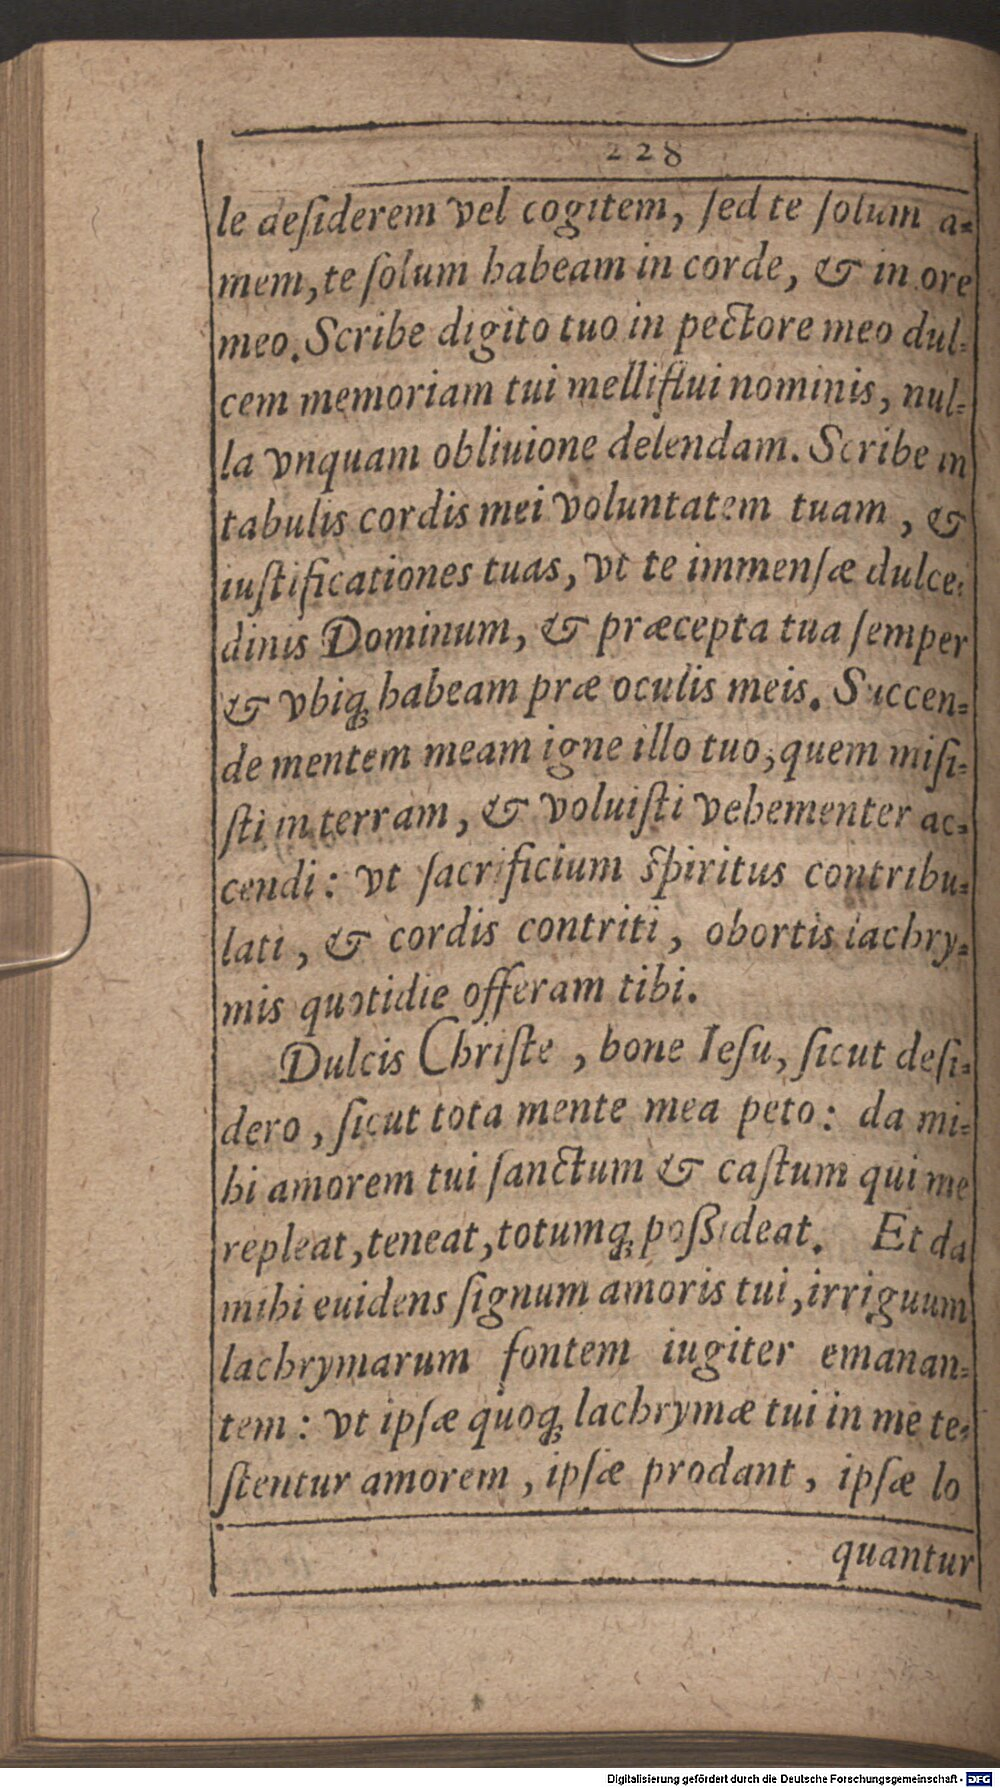 228
le deſiderem vel cogitem, ſed te ſolum a-
mem, te ſolum habeam in corde, & in ore
meo. Scribe digito tuo in pectore meo dul-
cem memoriam tui melliflui nominis, nul-
la vnquam obliuione delendam. Scribe in
tabulis cordis mei voluntatem tuam, &
iuſtificationes tuas, vt te immenſæ dulce-
dinis Dominum, & præcepta tua ſemper
& vbiq; habeam præ oculis meis. Succen-
de mentem meam igne illo tuo, quem miſi-
ſti in terram, & voluiſti vehementer ac-
cendi: vt ſacrificium ſpiritus contribu-
lati, & cordis contriti, obortis lachry-
mis quotidie offeram tibi.
Dulcis Chriſte, bone Ieſu, ſicut deſi-
dero, ſicut tota mente mea peto: da mi-
hi amorem tui ſanctum & caſtum qui me
repleat, teneat, totumq; poßideat. Et da
mihi euidens ſignum amoris tui, irriguum
lachrymarum fontem iugiter emanan-
tem: vt ipſæ quoq; lachrymæ tui in me te-
ſtentur amorem, ipſæ prodant, ipſæ lo
quantur
Digitalisierung gefördert durch die Deutsche Forschungsgemeinschaft - DFG